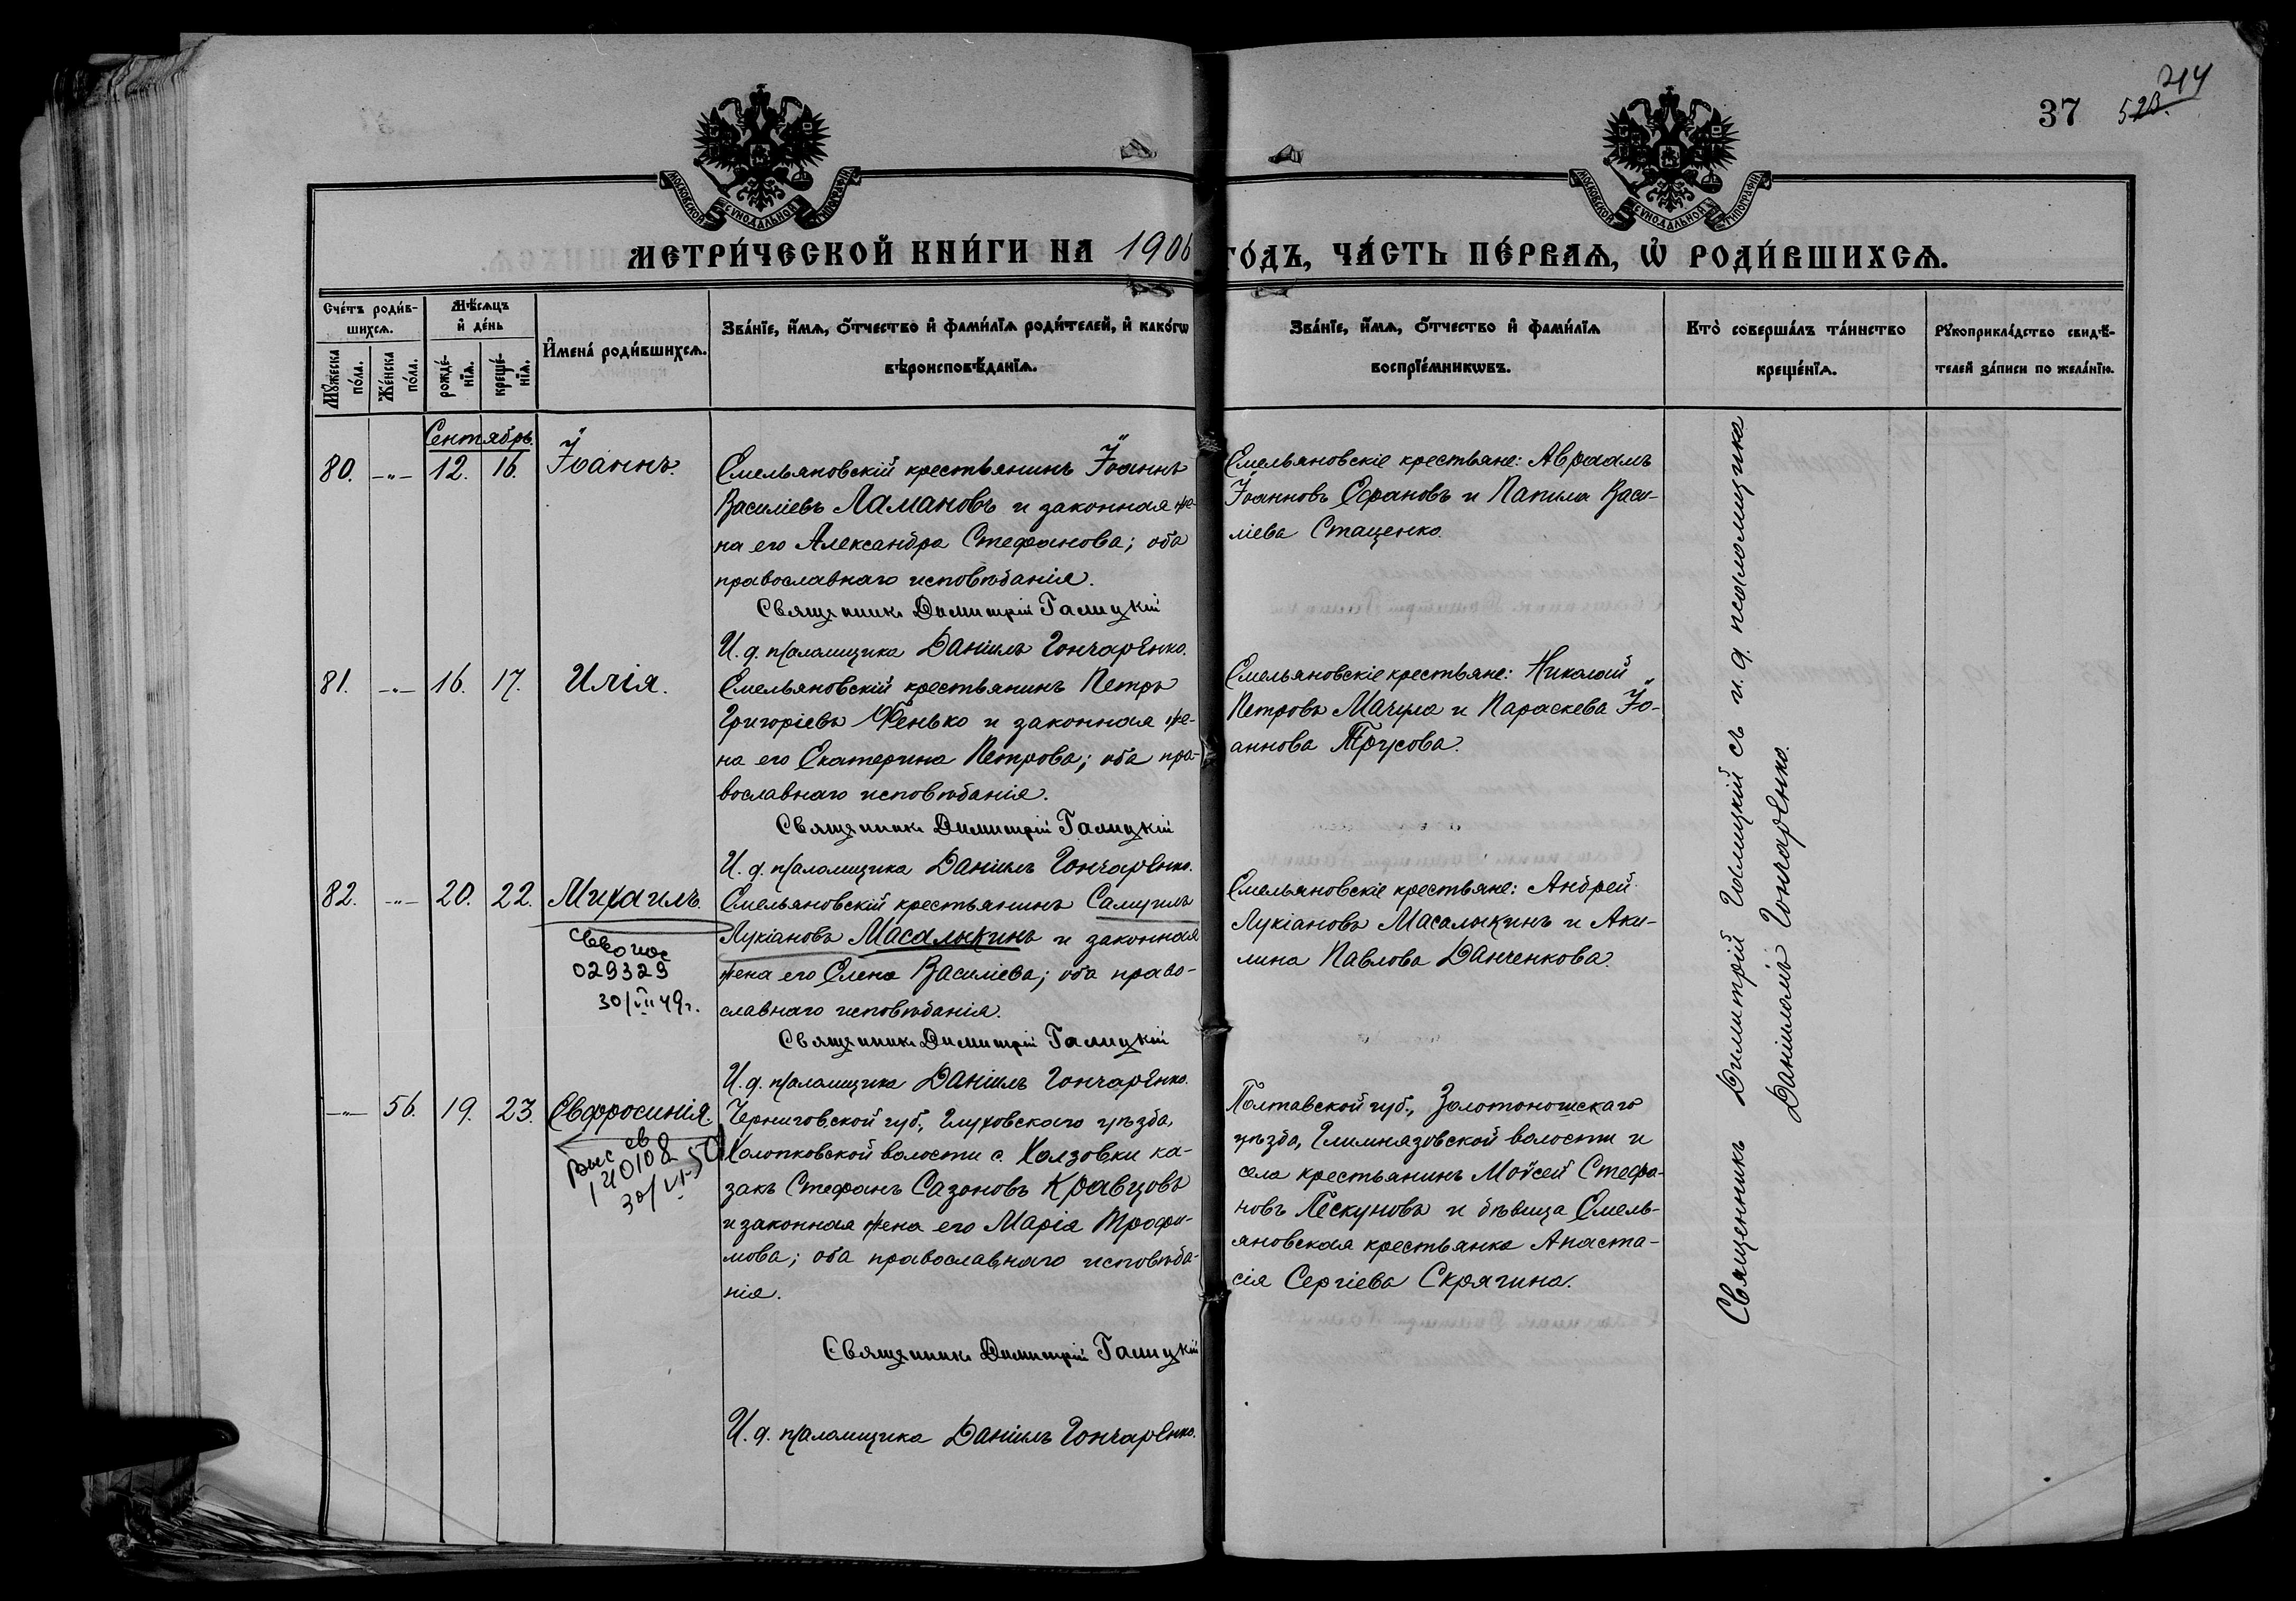 37
214
МОСКОВСКОЙ СѴНОДАЛЬНОЙ ТИПОГРАФІИ
МОСКОВСКОЙ СѴНОДАЛЬНОЙ ТИПОГРАФІИ
МЕТРИ́ЧЕСКОЙ КНИ́ГИ НА 1906 ГО́ДЪ, ЧА́СТЬ ПЕ́РВАѦ, Ѡ҆ РОДИ́ВШИХСѦ.
Сче́тъ роди́в-
шихсѧ.
Мꙋ́жеска по́ла.
Же́нска по́ла.
Мѣ́сѧцъ
и҆ де́нь
рожде́-
нїѧ.
креще́-
нїѧ.
И҆мена̀ роди́вшихсѧ.
Зва́нїе, и҆́мѧ, ѻ҆́тчество и҆ фами́лїѧ роди́телей, и҆ како́гѡ
вѣроисповѣ́данїѧ.
Зва́нїе, и҆́мѧ, ѻ҆́тчество и҆ фами́лїѧ
воспрїе́мникѡвъ.
Кто̀ соверша́лъ та́инство
креще́нїѧ.
Рꙋкоприкла́дство свидѣ́-
телей за́писи по жела́нїю.
Сентябрь.
80. —"— 12. 16. Іоаннъ.
Емельяновскій крестьянинъ Іоаннъ
Василіевъ Ламановъ и законная же-
на его Александра Стефанова; оба
православнаго исповѣданія.
Священникъ Димитрій Галицкій
И. д. псаломщика Даніилъ Гончаренко.
Емельяновскіе крестьяне: Авраамъ
Іоанновъ Сфановъ и Васи-
ліева Стаценко.
81. —"— 16. 17. Илія.
Емельяновскій крестьянинъ Петръ
Григоріевъ Фенько и законная же-
на его Екатерина Петрова; оба пра-
вославнаго исповѣданія.
Священникъ Димитрій Галицкій
И. д. псаломщика Даніилъ Гончаренко.
Емельяновскіе крестьяне: Николай
Петровъ Мачула и Параскева Іо-
аннова Трусова.
82. —"— 20. 22. Михаилъ.
029329
30/VII 49г.
Емельяновскій крестьянинъ Самуилъ
Лукіановъ Масалыкинъ и законная
жена его Елена Василіева; оба право-
славнаго исповѣданія.
Священникъ Димитрій Галицкій
И. д. псаломщика Даніилъ Гончаренко.
Емельяновскіе крестьяне: Андрей
Лукіановъ Масалыкинъ и Аки-
лина Павлова Данченкова.
—"— 56. 19. 23. Евфросинія.
Выс св
140108
30/VI-50
Черниговской губ., Глуховскаго уѣзда,
Холопковской волости с. Холзовки ка-
закъ Стефанъ Сазоновъ Кравцовъ
и законная жена его Марія Трофи-
мова; оба православнаго исповѣда-
нія.
Священникъ Димитрій Галицкій
И. д. псаломщика Даніилъ Гончаренко.
Полтавской губ., Золотоношскаго
уѣзда, Глимнязовской волости и
села крестьянинъ Моѵсей Стефа-
новъ Пескуновъ и дѣвица Емель-
яновская крестьянка Анаста-
сія Сергіева Скрягина.
Священникъ Димитрій Галицкій съ и. д. псаломщика
Даніиломъ Гончаренко.